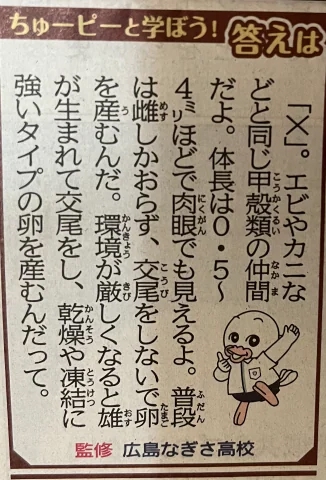 ちゅーピーと学ぼう!
答えは
「X」。エビやカニな
どと同じ甲殻類の仲間
だよ。体長は0・5〜
4㍉ほどで肉眼でも見えるよ。普段
は雌しかおらず、交尾をしないで卵
を産むんだ。環境が厳しくなると雄
が生まれて交尾をし、乾燥や凍結に
強いタイプの卵を産むんだって。
監修 広島なぎさ高校